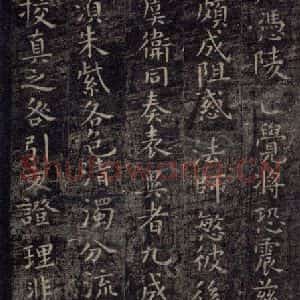 憑陵正覺將恐震茲
頗成阻惑 法師愍彼後
虞衛同奏表者九成
須朱紫各色清濁分流
真之咎引文證理非